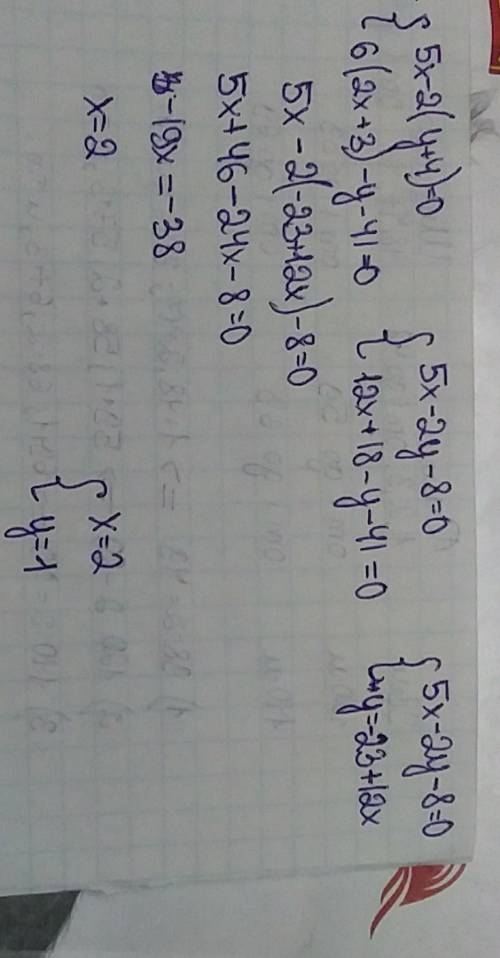 { 5x-2(y+4)=0 { 5x-2y-8=0 { 5x-2y-8=0
{ 6(2x+3)-y-41=0 { 12x+18-y-41=0 { +y=-23+12x
5x-2(-23+12x)-8=0
5x+46-24x-8=0
-19x=-38
x=2 { x=2
{ y=1